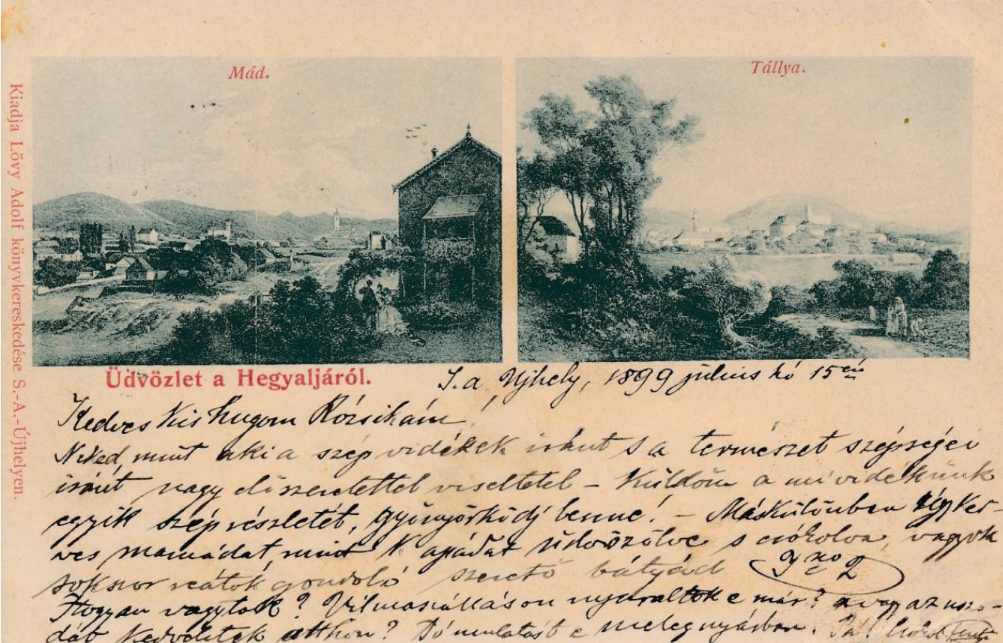 Mád.
Tállya.
Kiadja Lövy Adolf könyvkereskedése S.-A.-Újhelyen.
Üdvözlet a Hegyaljáról.
S. a Ujhely, 1899 július hó 15én
Kedves kis hugom Rózsikám!
Neked mint aki a szép vidékek iránt s a természet szépségei
iránt nagy előszeretettel viseltetel – Küldöm a mi vidékünk
egyik szép részletét, gyönyörködj benne! – Máskülönben úgy ked
ves mamádat, mint apádat üdvözölve s csókolva, vagyok
sokszor reátok gondoló szerető bátyád
Hogyan vagytok? Vilmosálláson nyaraltok e már? avagy az uszo-
dáb kedvéért otthon? Jó mulatást e melegnyárban.